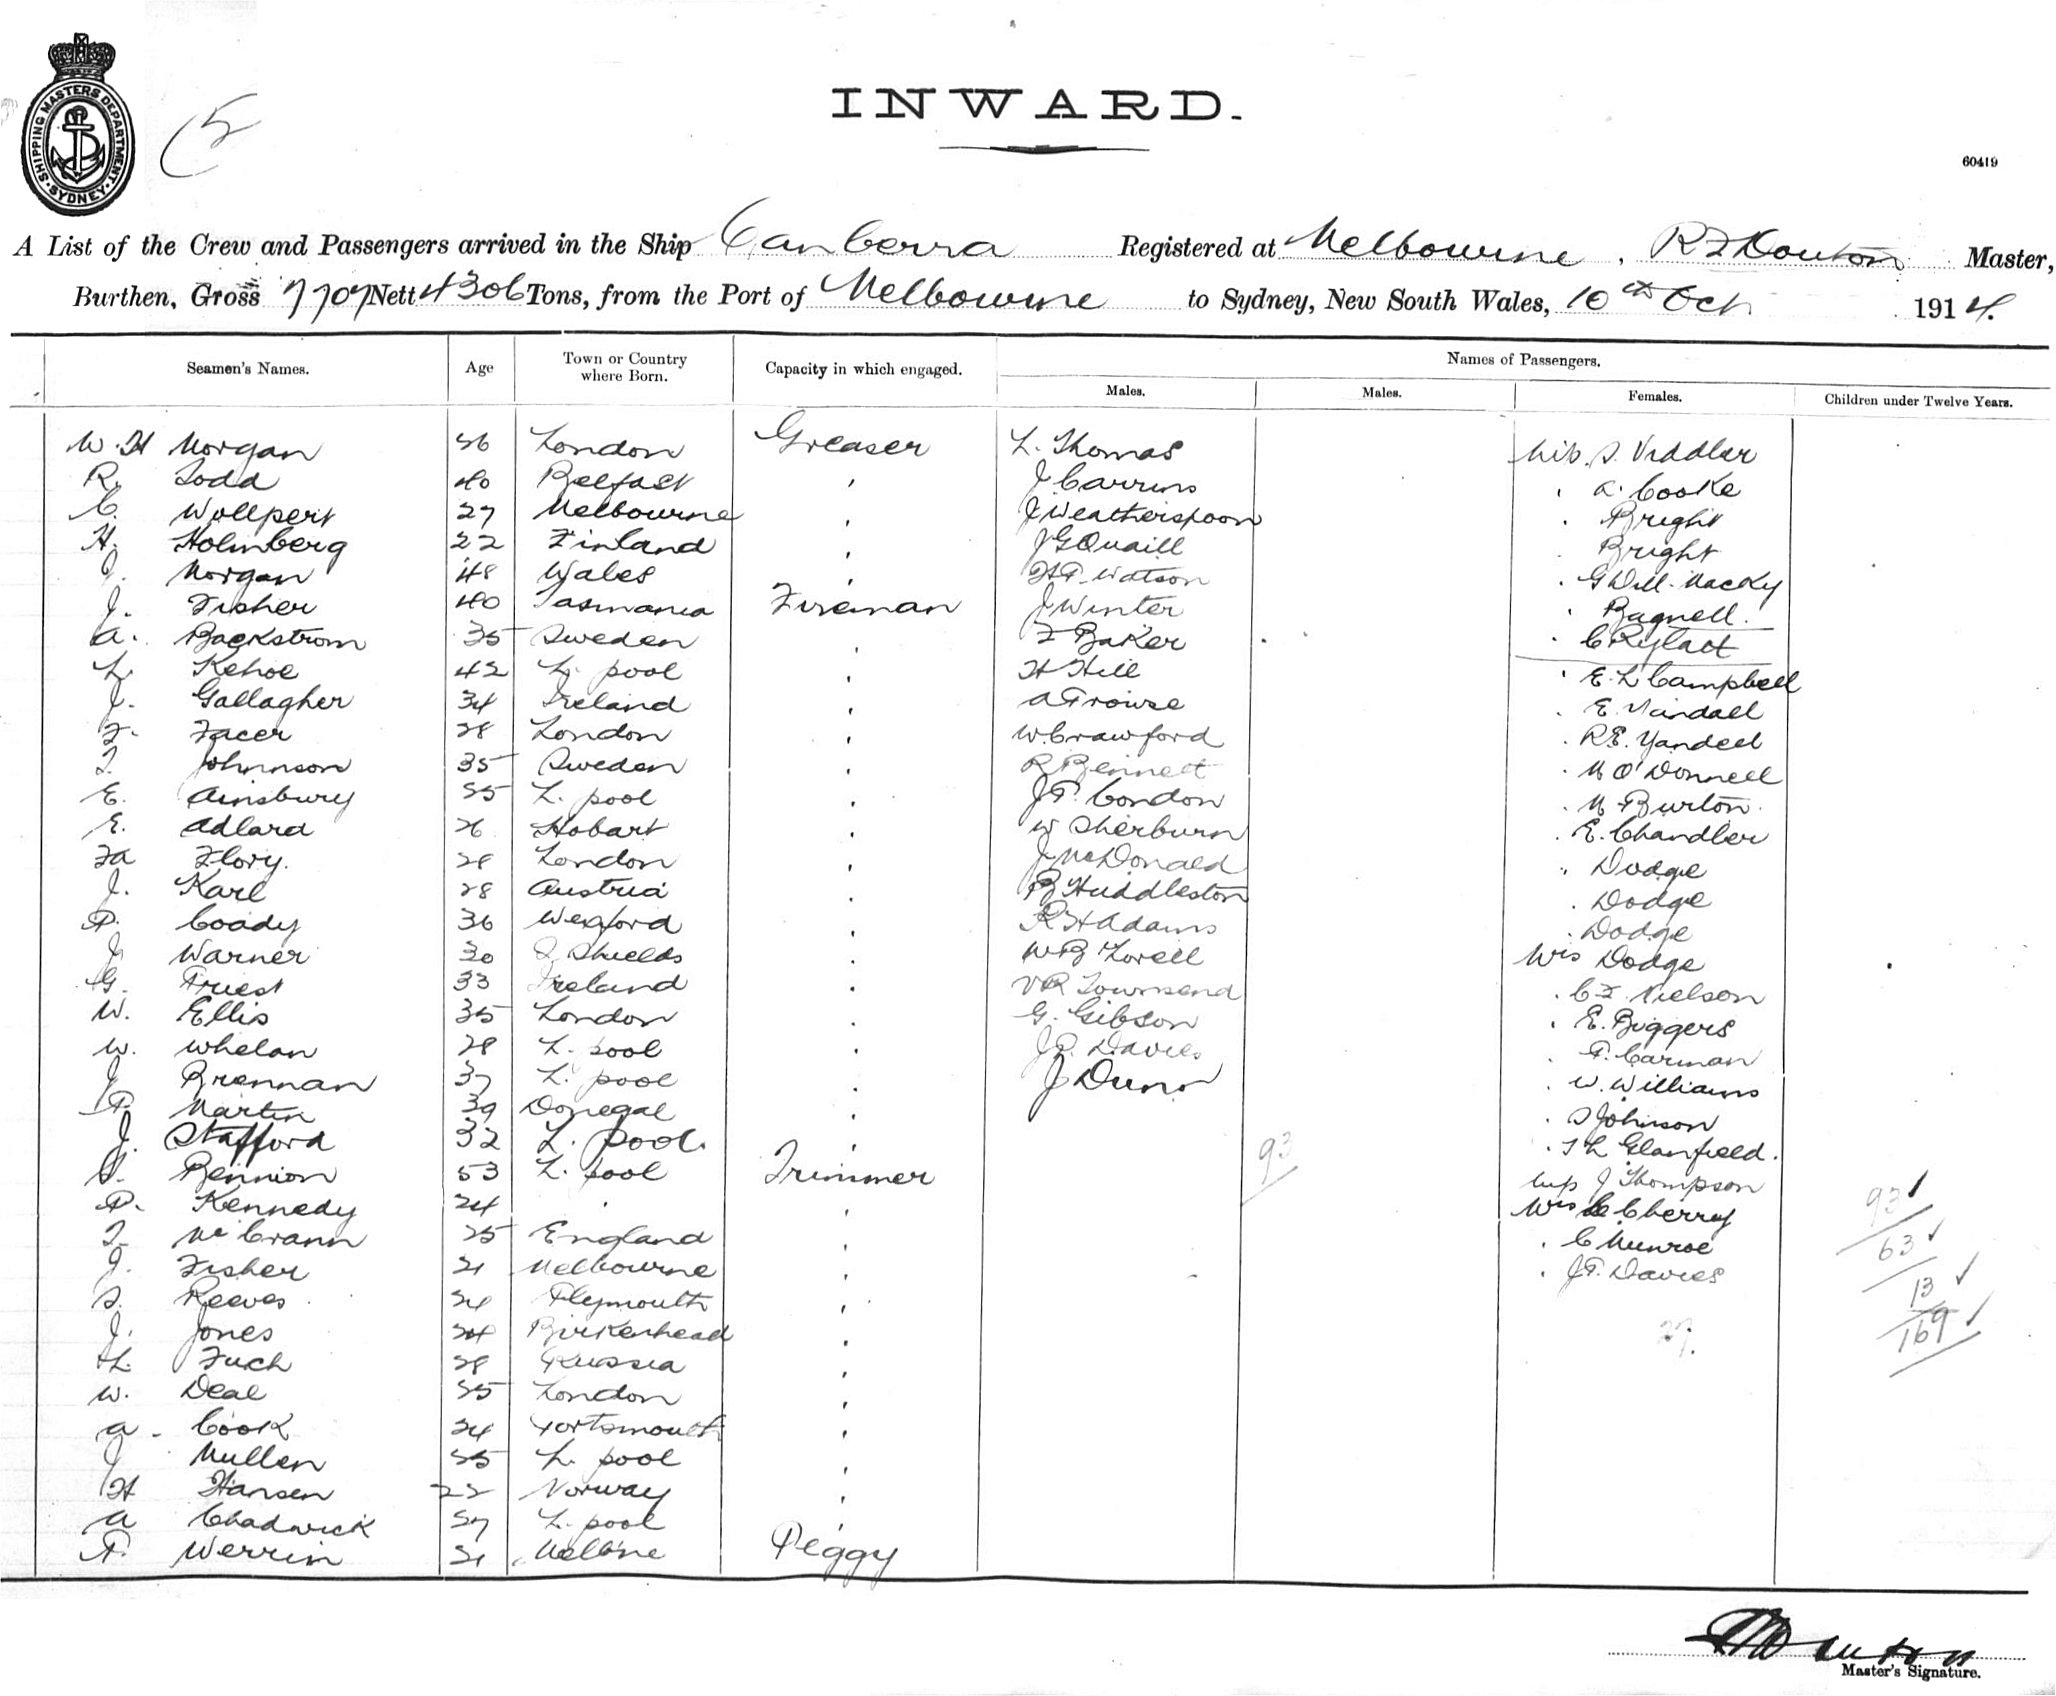 SHIPPING MASTERS DEPARTMENT
SYDNEY
5
INWARD.
60419
A List of the Crew and Passengers arrived in the Ship Canberra Registered at Melbourne, Master,
Burthen, Gross 7707 Nett 4306 Tons, from the Port of Melbourne to Sydney, New South Wales, 10th Oct 1914.
Names of Passengers.
Seamen's Names. Age Town or Country where Born. Capacity in which engaged. Males. Males. Females. Children under Twelve Years.
W. H Morgan 26 London Greaser L. Thomas Mis. S. Viddler
R. Todd 40 Belfast " J Carrins " A. Cooke
C. Wollpert 27 Melbourne " J Weatherspoon " Bright
H. Holmberg 22 Finland " J G Quaill " Bright
J. Morgan 48 Wales " Watson " G Dell. Macky
J. Fisher 40 Tasmania Fireman J Winter " Bagnell.
A. Backstrom 35 Sweden " F Baker "
L. Kehoe 42 L. pool " H Hill " E. L Campbell
J. Gallagher 34 Ireland " A Prowse " E.
F. Facer 28 London " W. Crawford " R E. Yandell
J. Johnnson 35 Sweden " R Bennett " M O'Donnell
E. Ainsbury 25 L. pool " J P. Condon " M Burton
E. Adlard 26 Hobart " W Sherburn " E. Chandler
Fa Flory. 28 London " J McDonald " Dodge
J. Karl 28 Austria " B Huddleston " Dodge
P. Coady 36 Wexford " R H Adams " Dodge
J Warner 30 S Shields " W B Lovell Mrs Dodge
G. Priest 33 Ireland " V R Townsend " C F Nielson
W. Ellis 35 London " G. Gibson " E. Biggers
W. Whelan 28 L. pool " J P. Davies " P. Carman
J Brennan 37 L. pool " J Dunn " W. Williams
P. Martin 39 Donegal " " S Johnson
J. Stafford 32 L. pool. " 93 " T L Glanfield.
S. Bennion 53 L. pool Trimmer Miss J Thompson 93
P. Kennedy 24 " " Mrs Cherry
T. McCrann 25 England " " C Munroe 63
J. Fisher 21 Melbourne " " J P. Davies
S. Reeves 24 Plymouth " 13
J. Jones 24 Birkenhead " 27. 169
H. Fuch 28 Russia "
W. Deal 25 London "
A. Cook 24 Portsmouth "
J Mullen 25 L. pool "
H Hansen 22 Norway "
A Chadwick 27 L. pool "
P. Werrin 21 Melbne Peggy
Master's Signature.